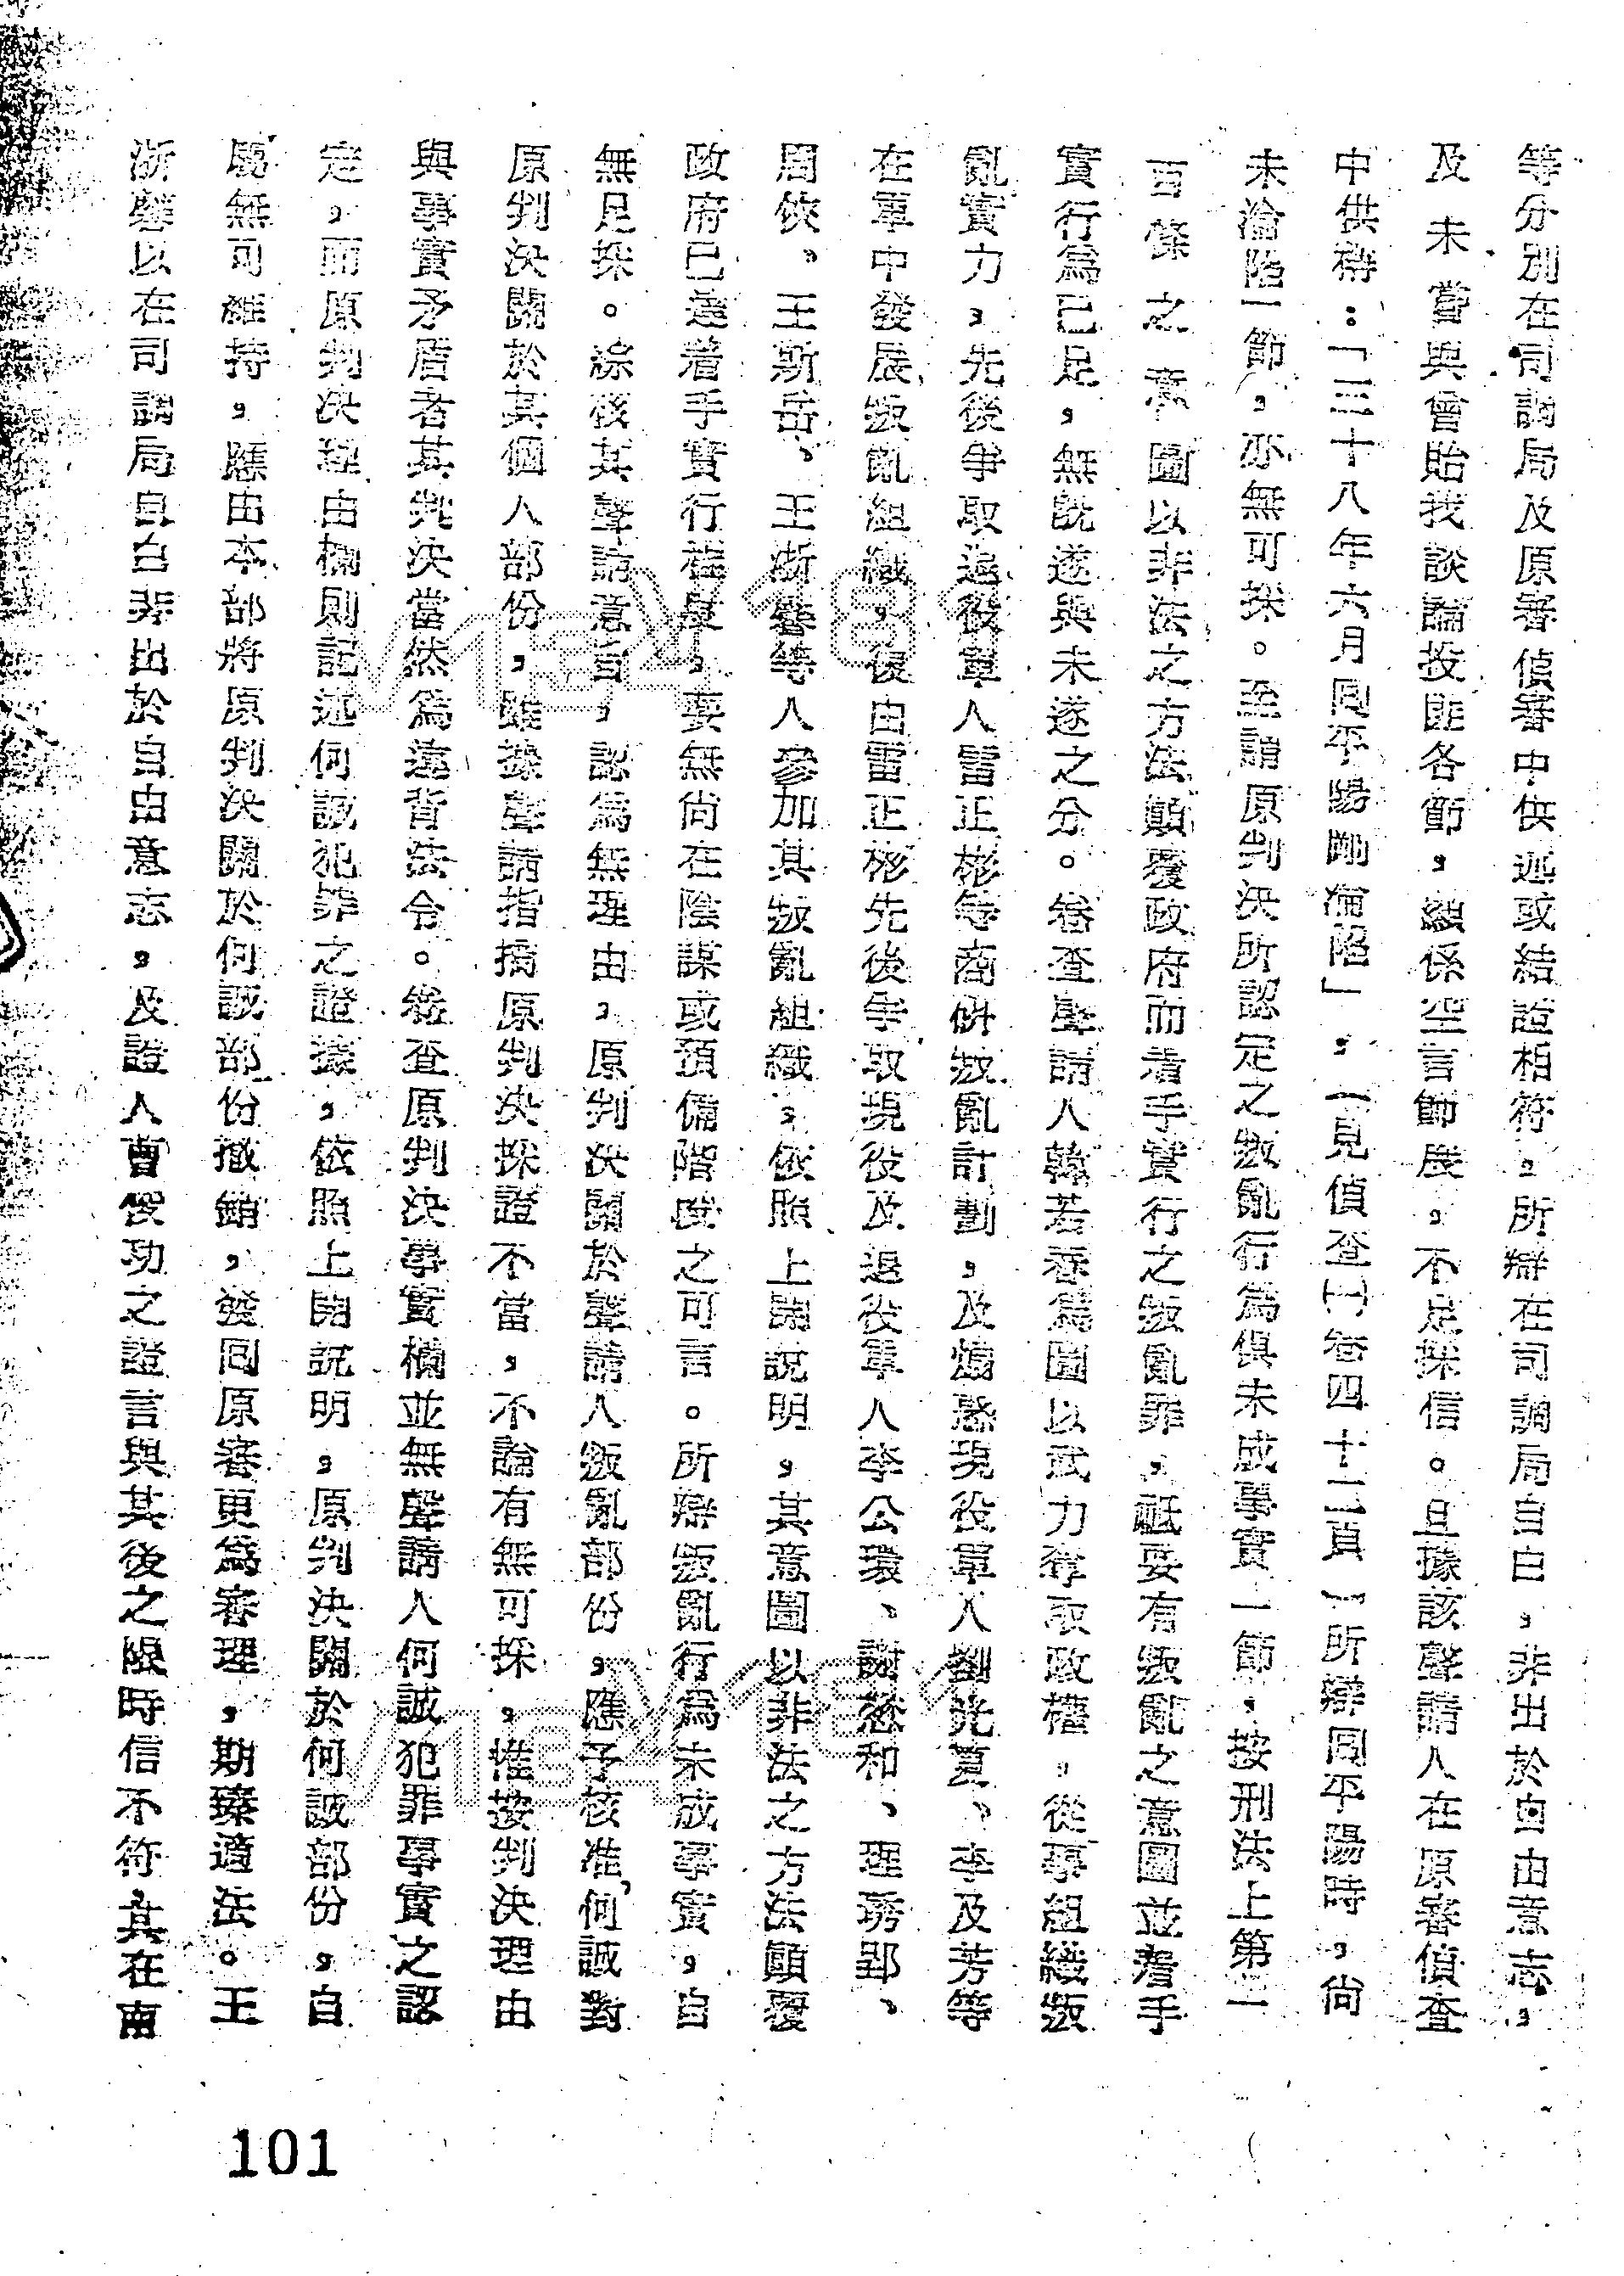 等分別在司調局及原審偵審中供述或結證相符。所辯在司調局自白，非出於自由意志，
及未嘗與曾貽我談論投匪各節，顯係空言飾展，不足採信。且據該聲請人在原審偵查
中供稱：「三十八年六月回平陽剛淪陷」，（見偵查(一)卷四十二頁）所辯回平陽時，尚
未淪陷一節，亦無可採。至謂原判決所認定之叛亂行為俱未成事實一節，按刑法上第一
百條之意圖以非法之方法顛覆政府而着手實行之叛亂罪，祇要有叛亂之意圖並着手
實行為已足，無既遂與未遂之分。卷查聲請人韓若春為圖以武力奪取政權，從事組織叛
亂實力，先後爭取退役軍人雷正彬等商研叛亂計劃，及煽惑現役軍人劉光夏、李及芳等
在軍中發展叛亂組織，復由雷正彬先後爭取現役及退役軍人李公環、謝慈和、理琇郢、
周俠、王斯岳、王浙磐等人參加其叛亂組織，依照上開說明，其意圖以非法之方法顛覆
政府已達着手實行程度，要無尚在陰謀或預備階段之可言。所辯叛亂行為未成事實，自
無足採。綜核其聲請意旨，認為無理由，原判決關於聲請人叛亂部份，應予核准，何誠對
原判決關於其個人部份，雖據聲請指摘原判決採證不當，不論有無可採，惟按判決理由
與事實矛盾者其判決當然為違背法令。卷查原判決事實欄並無聲請人何誠犯罪事實之認
定，而原判決理由欄則記述何誠犯罪之證據，依照上開說明，原判決關於何誠部份，自
屬無可維持，應由本部將原判決關於何誠部份撤銷，發回原審更為審理，期臻適法。王
浙磐以在司調局自白非出於自由意志，及證人曹俊功之證言與其後之限時信不符，其在南
101